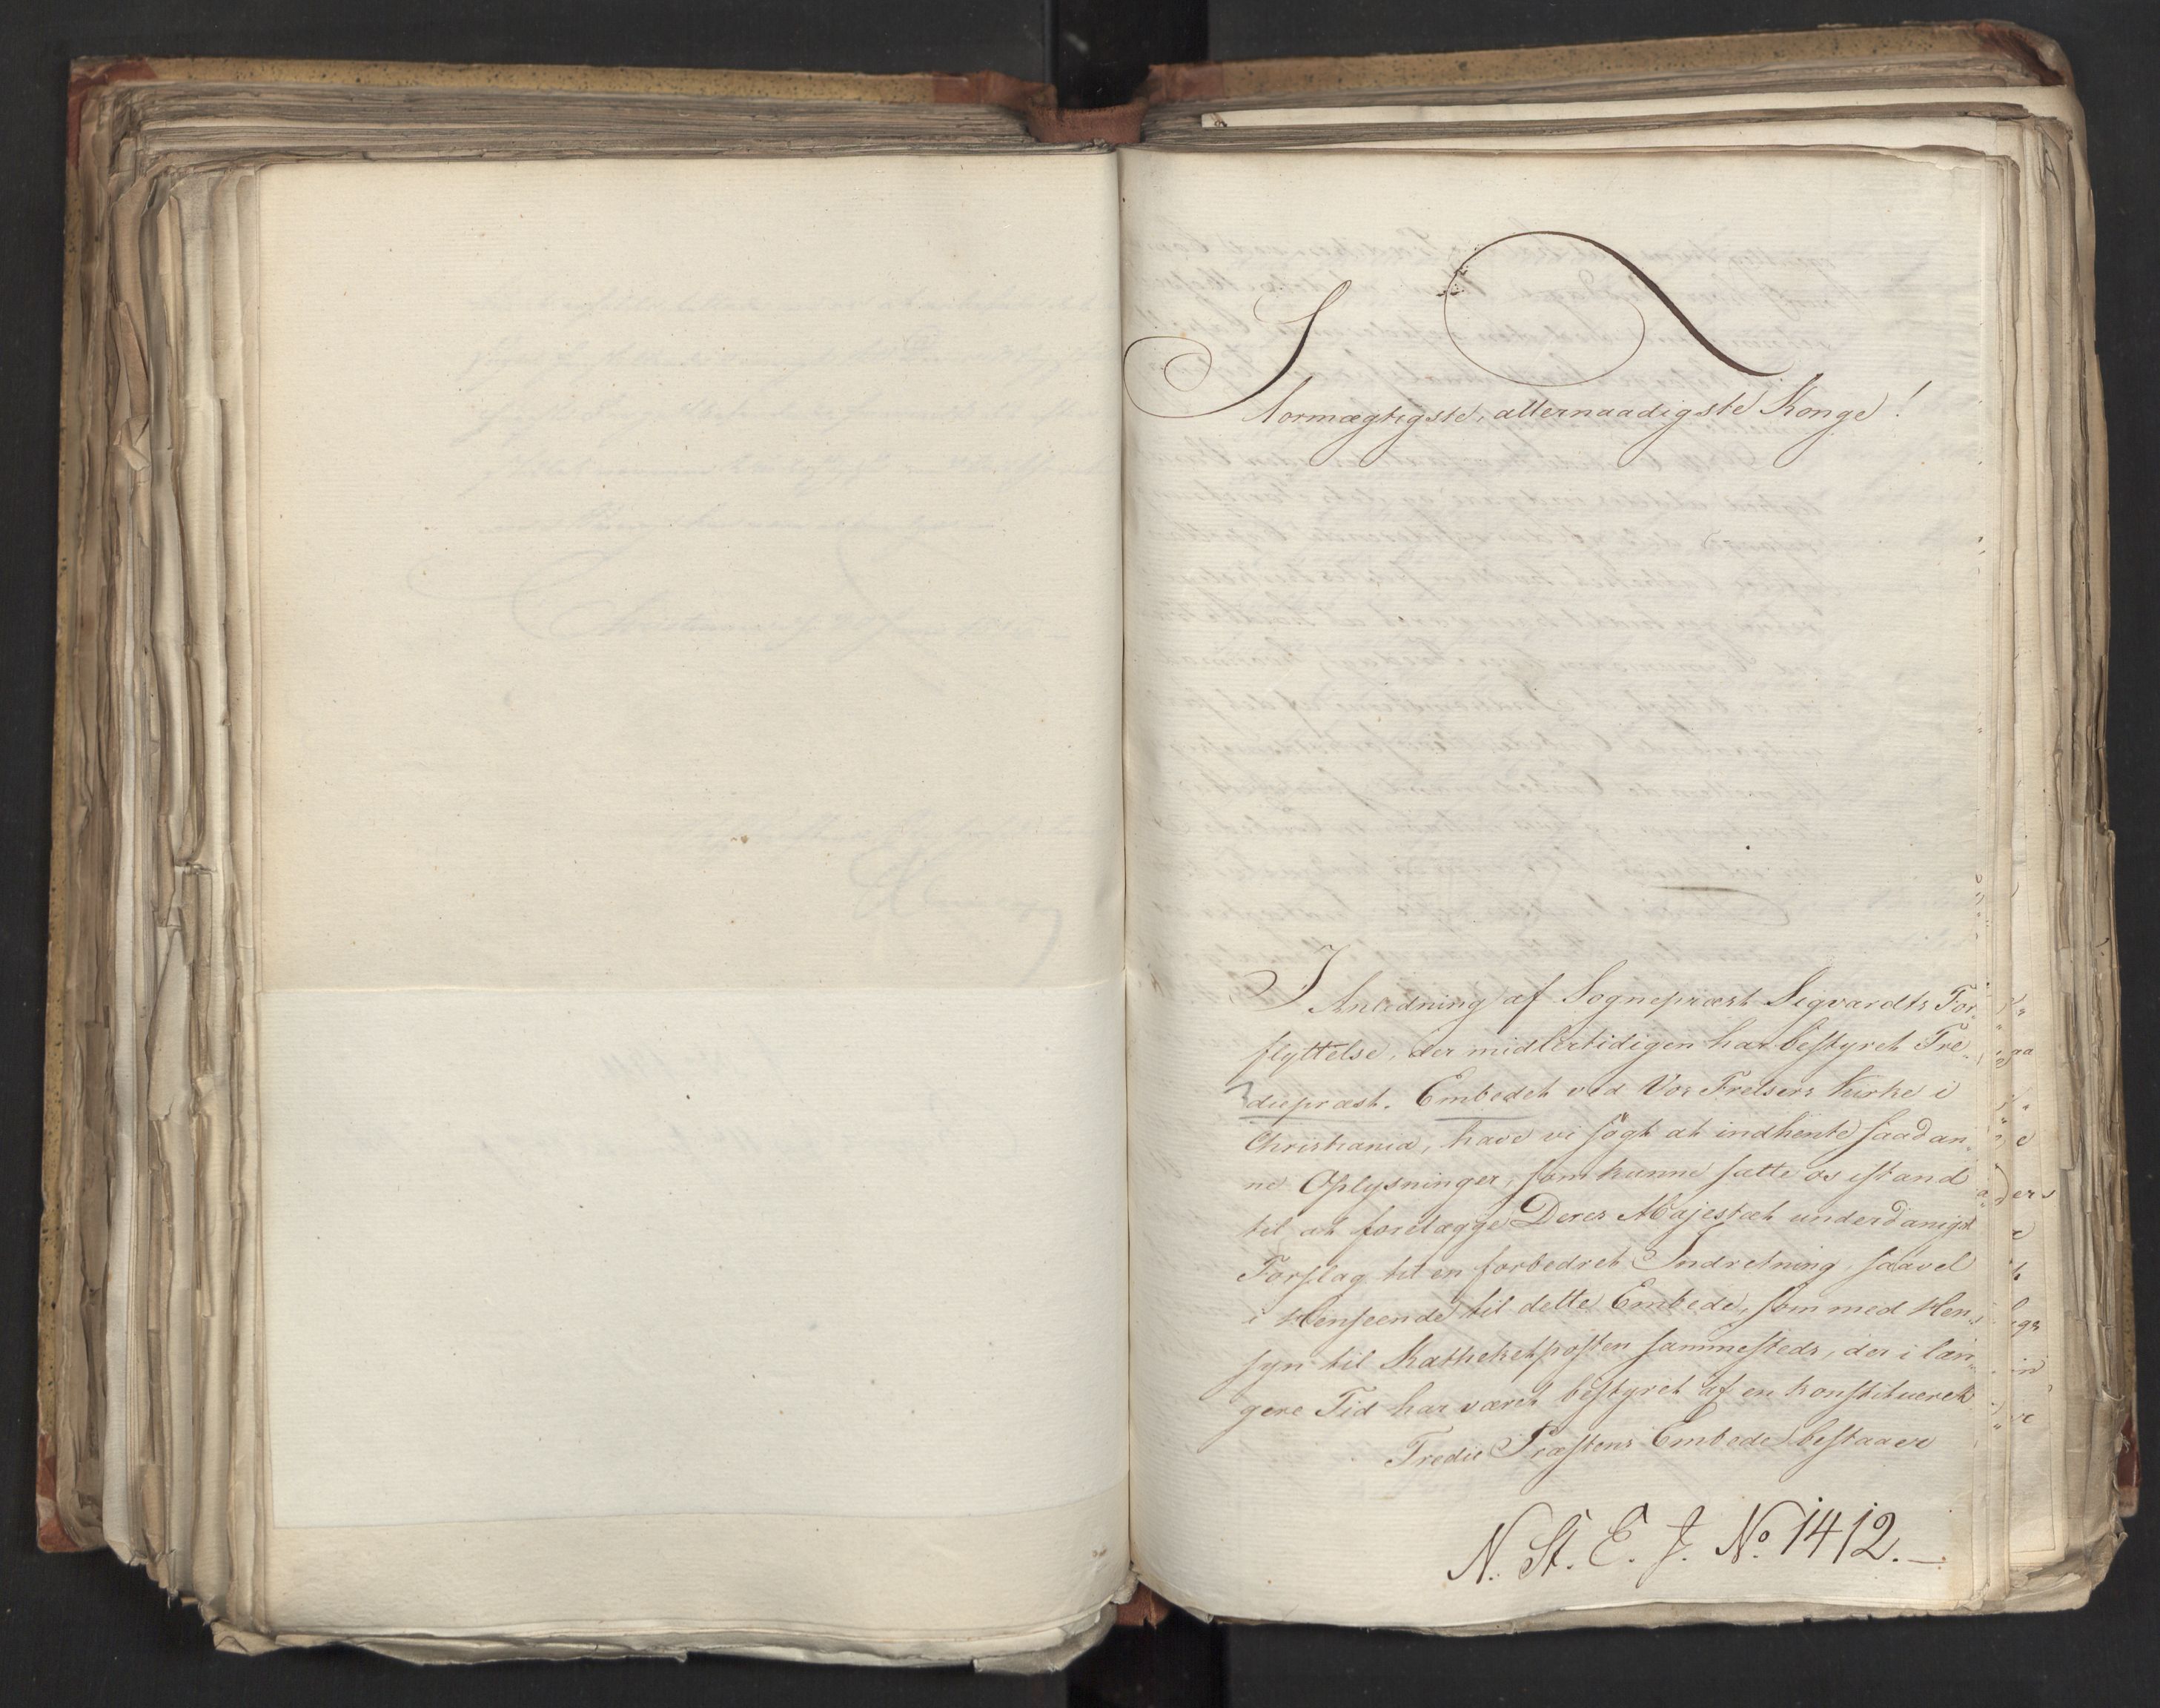 Stormægtigste, allernaadigste Konge!
I Anledning af Sognepræst Sigvardts For„
flyttelse, der midlertidigen har bestyret Tre„
diepræst-Embedet ved Vor Frelsers Kirke i
Christiania, have vi søgt at indhente saadan„
ne Oplysninger, som kunne sætte os istand
til at forelægge Deres Majestæt underdanigst
Forslag til en forbedret Indretning saavel
i Henseende til dette Embede, som med Hen„
syn til Kathekekposten sammesteds, der i læn„
gere Tid har været bestyret af en konstitueret
Tredie Præstens Embede bestaaer
N. St. E. J. No. 1412.